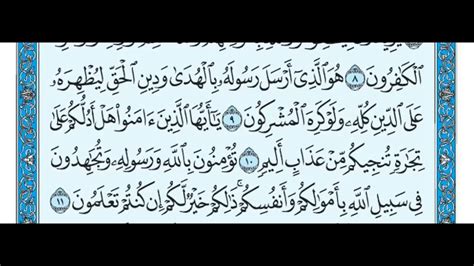 ٱلْكَٰفِرُونَ ۝٨ هُوَ ٱلَّذِىٓ أَرْسَلَ رَسُولَهُۥ بِٱلْهُدَىٰ وَدِينِ ٱلْحَقِّ لِيُظْهِرَهُۥ
عَلَى ٱلدِّينِ كُلِّهِۦ وَلَوْ كَرِهَ ٱلْمُشْرِكُونَ ۝٩ يَٰٓأَيُّهَا ٱلَّذِينَ ءَامَنُوا۟ هَلْ أَدُلُّكُمْ عَلَىٰ
تِجَٰرَةٍ تُنجِيكُم مِّنْ عَذَابٍ أَلِيمٍ ۝١٠ تُؤْمِنُونَ بِٱللَّهِ وَرَسُولِهِۦ وَتُجَٰهِدُونَ
فِى سَبِيلِ ٱللَّهِ بِأَمْوَٰلِكُمْ وَأَنفُسِكُمْ ۚ ذَٰلِكُمْ خَيْرٌ لَّكُمْ إِن كُنتُمْ تَعْلَمُونَ ۝١١